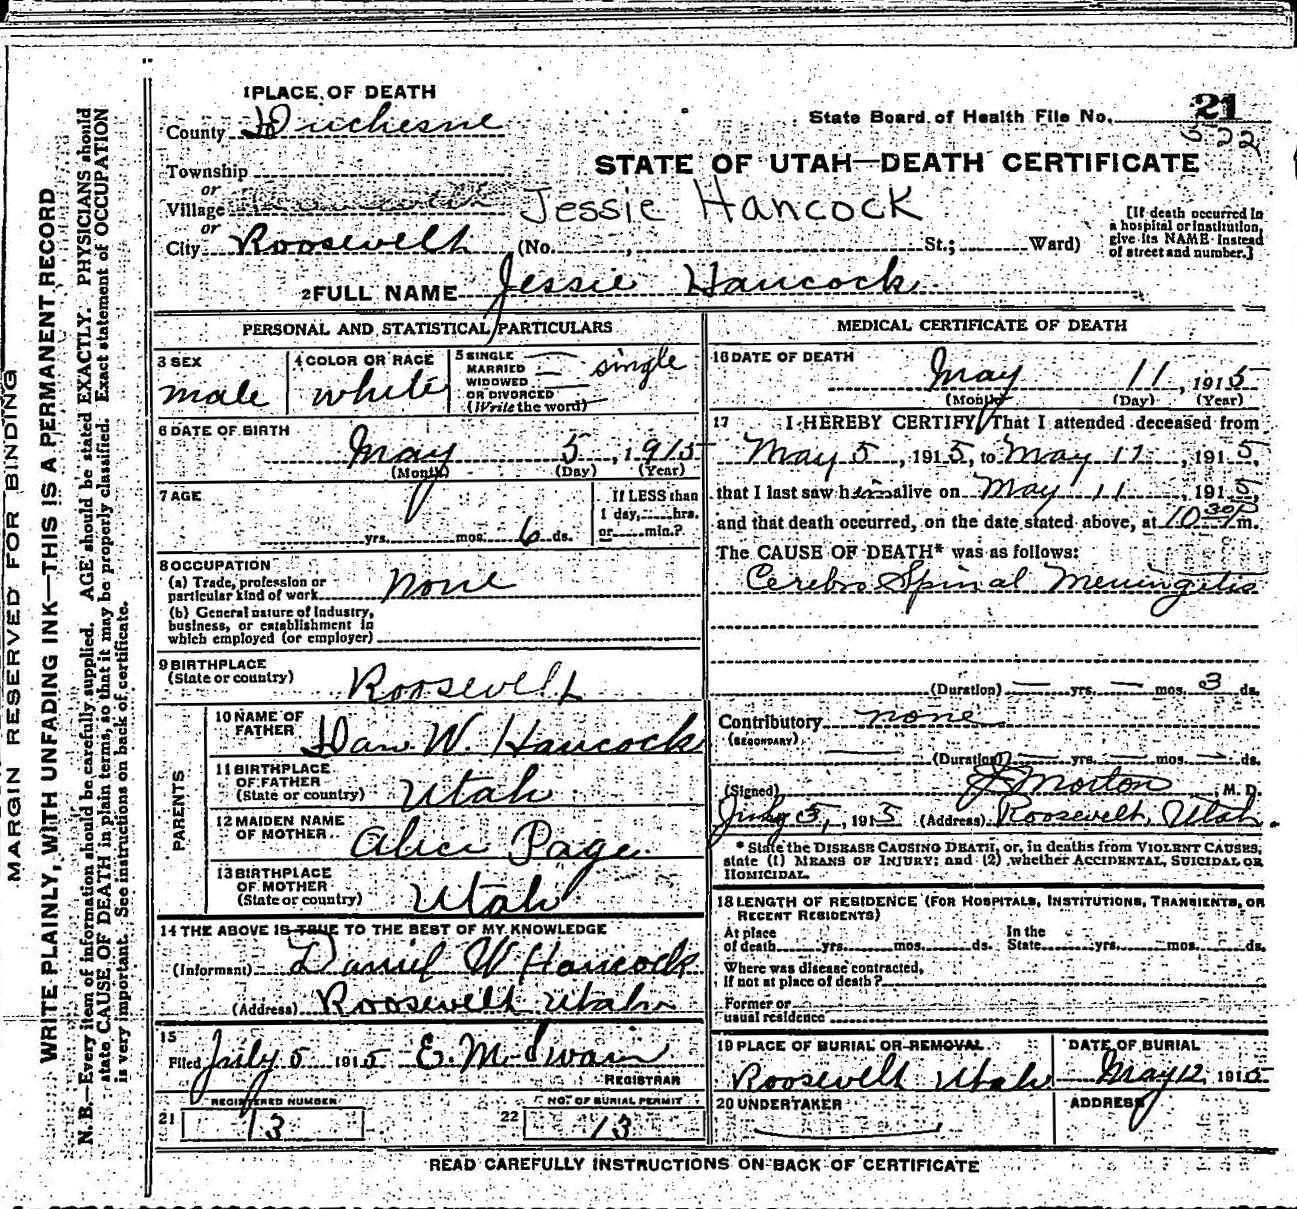 MARGIN RESERVED FOR BINDING
WRITE PLAINLY, WITH UNFADING INK—THIS IS A PERMANENT RECORD
N. B.—Every item of information should be carefully supplied. AGE should be stated EXACTLY. PHYSICIANS should
state CAUSE OF DEATH in plain terms, so that it may be properly classified. Exact statement of OCCUPATION
is very important. See instructions on back of certificate.
1 PLACE OF DEATH
County Duchesne
State Board of Health File No. 21
522
STATE OF UTAH—DEATH CERTIFICATE
Township
or
Village
Jessie Hancock
or
City Roosevelt (No. , St.; Ward)
[If death occurred in
a hospital or institution,
give its NAME instead
of street and number.]
2 FULL NAME Jessie Hancock
PERSONAL AND STATISTICAL PARTICULARS
3 SEX
male
4 COLOR OR RACE
white
5 SINGLE
MARRIED
WIDOWED
OR DIVORCED
(Write the word)
single
6 DATE OF BIRTH
May 5, 1915
(Month) (Day) (Year)
7 AGE
yrs. mos. 6 ds.
If LESS than
1 day, hrs.
or min.?
8 OCCUPATION
(a) Trade, profession or
particular kind of work none
(b) General nature of industry,
business, or establishment in
which employed (or employer)
9 BIRTHPLACE
(State or country) Roosevelt
PARENTS
10 NAME OF
FATHER Dan. W. Hancock
11 BIRTHPLACE
OF FATHER
(State or country) Utah
12 MAIDEN NAME
OF MOTHER Alice Page
13 BIRTHPLACE
OF MOTHER
(State or country) Utah
14 THE ABOVE IS TRUE TO THE BEST OF MY KNOWLEDGE
(Informant) Daniel W Hancock
(Address) Roosevelt Utah
15
Filed July 5 1915 E. M. Swain
REGISTRAR
REGISTERED NUMBER
21 13
NO. OF BURIAL PERMIT
22 13
MEDICAL CERTIFICATE OF DEATH
16 DATE OF DEATH
May 11, 1915
(Month) (Day) (Year)
17 I HEREBY CERTIFY, That I attended deceased from
May 5, 1915, to May 11, 1915,
that I last saw him alive on May 11, 1915,
and that death occurred, on the date stated above, at 10 30 P m.
The CAUSE OF DEATH* was as follows:
Cerebro Spinal Meningitis
(Duration) — yrs. — mos. 3 ds.
Contributory none
(SECONDARY)
(Duration) — yrs. — mos. — ds.
(Signed) J Morton, M. D.
July 5, 1915 (Address) Roosevelt, Utah.
* State the DISEASE CAUSING DEATH, or, in deaths from VIOLENT CAUSES,
state (1) MEANS OF INJURY; and (2) whether ACCIDENTAL, SUICIDAL OR
HOMICIDAL.
18 LENGTH OF RESIDENCE (FOR HOSPITALS, INSTITUTIONS, TRANSIENTS, OR
RECENT RESIDENTS)
At place
of death yrs. mos. ds.
In the
State yrs. mos. ds.
Where was disease contracted,
If not at place of death?
Former or
usual residence
19 PLACE OF BURIAL OR REMOVAL
Roosevelt Utah
DATE OF BURIAL
May 12, 1915
20 UNDERTAKER
ADDRESS
READ CAREFULLY INSTRUCTIONS ON BACK OF CERTIFICATE